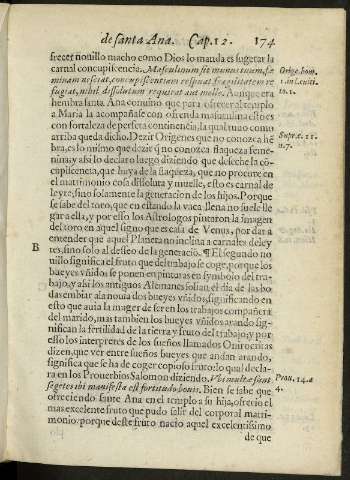 de santa Ana. Cap. 12. 174
frecer nouillo macho como Dios lo manda es sugetar la
carnal concupiscencia. Masculinum sit munus tuum, fæ
minam nesciat, concupiscentiam respuat fragilitatem re
fugiat, nihil dissolutum requirat aut molle. Aunque era
hembra santa Ana conuino que para ofrecer al templo
a Maria la acompañase con ofrenda masculina esto es
con fortaleza de perfeta continencia, la qual tuuo como
arriba queda dicho. Dezir Origenes que no conozca hẽ
bra, es lo mismo que dezir q̃ no conozca flaqueza feme-
nina; y assi lo declaro luego diziendo que deseche la cõ-
cupiscencia, que huya de la flaqueza, que no procure en
el matrimonio cosa dissoluta y muelle, esto es carnal de
leyte, sino solamente la generacion de los hijos. Porque
se sabe del toro, que en estando la vaca llena no suele lle
gar a ella, y por esso los Astrologos pintaron la imagen
del toro en aquel signo que es casa de Venus, por dar a
entender que aquel Planeta no inclina a carnales deley
tes, sino solo al desseo de la generaciõ. ¶ El segundo no
uillo significa el fruto que del trabajo se coge, porque los
bueyes vñidos se ponen en pinturas en symbolo del tra-
bajo; y assi los antiguos Alemanes solian el dia de las bo
das embiar a la nouia dos bueyes vñidos, significando en
esto que auia la muger de ser en los trabajos compañera
del marido, mas tambien los bueyes vñidos arando sig-
nifican la fertilidad de la tierra y fruto del trabajo, y por
esso los interpretes de los sueños llamados Onirocritas
dizen, que ver entre sueños bueyes que andan arando,
significa que se ha de coger copioso fruto: lo qual decla-
ra en los Prouerbios Salomon diziendo. Vbi multæ sunt
segetes ibi manifesta est fortitudo bouis. Bien se sabe que
ofreciendo santa Ana en el templo a su hija, ofrecio el
mas excelente fruto que pudo salir del corporal matri-
monio: porque deste fruto nacio aquel excelentissimo
de que
Orige. hom.
to. 1.
Supra. 11.
n. 7.
B
Prou. 14. a
4.